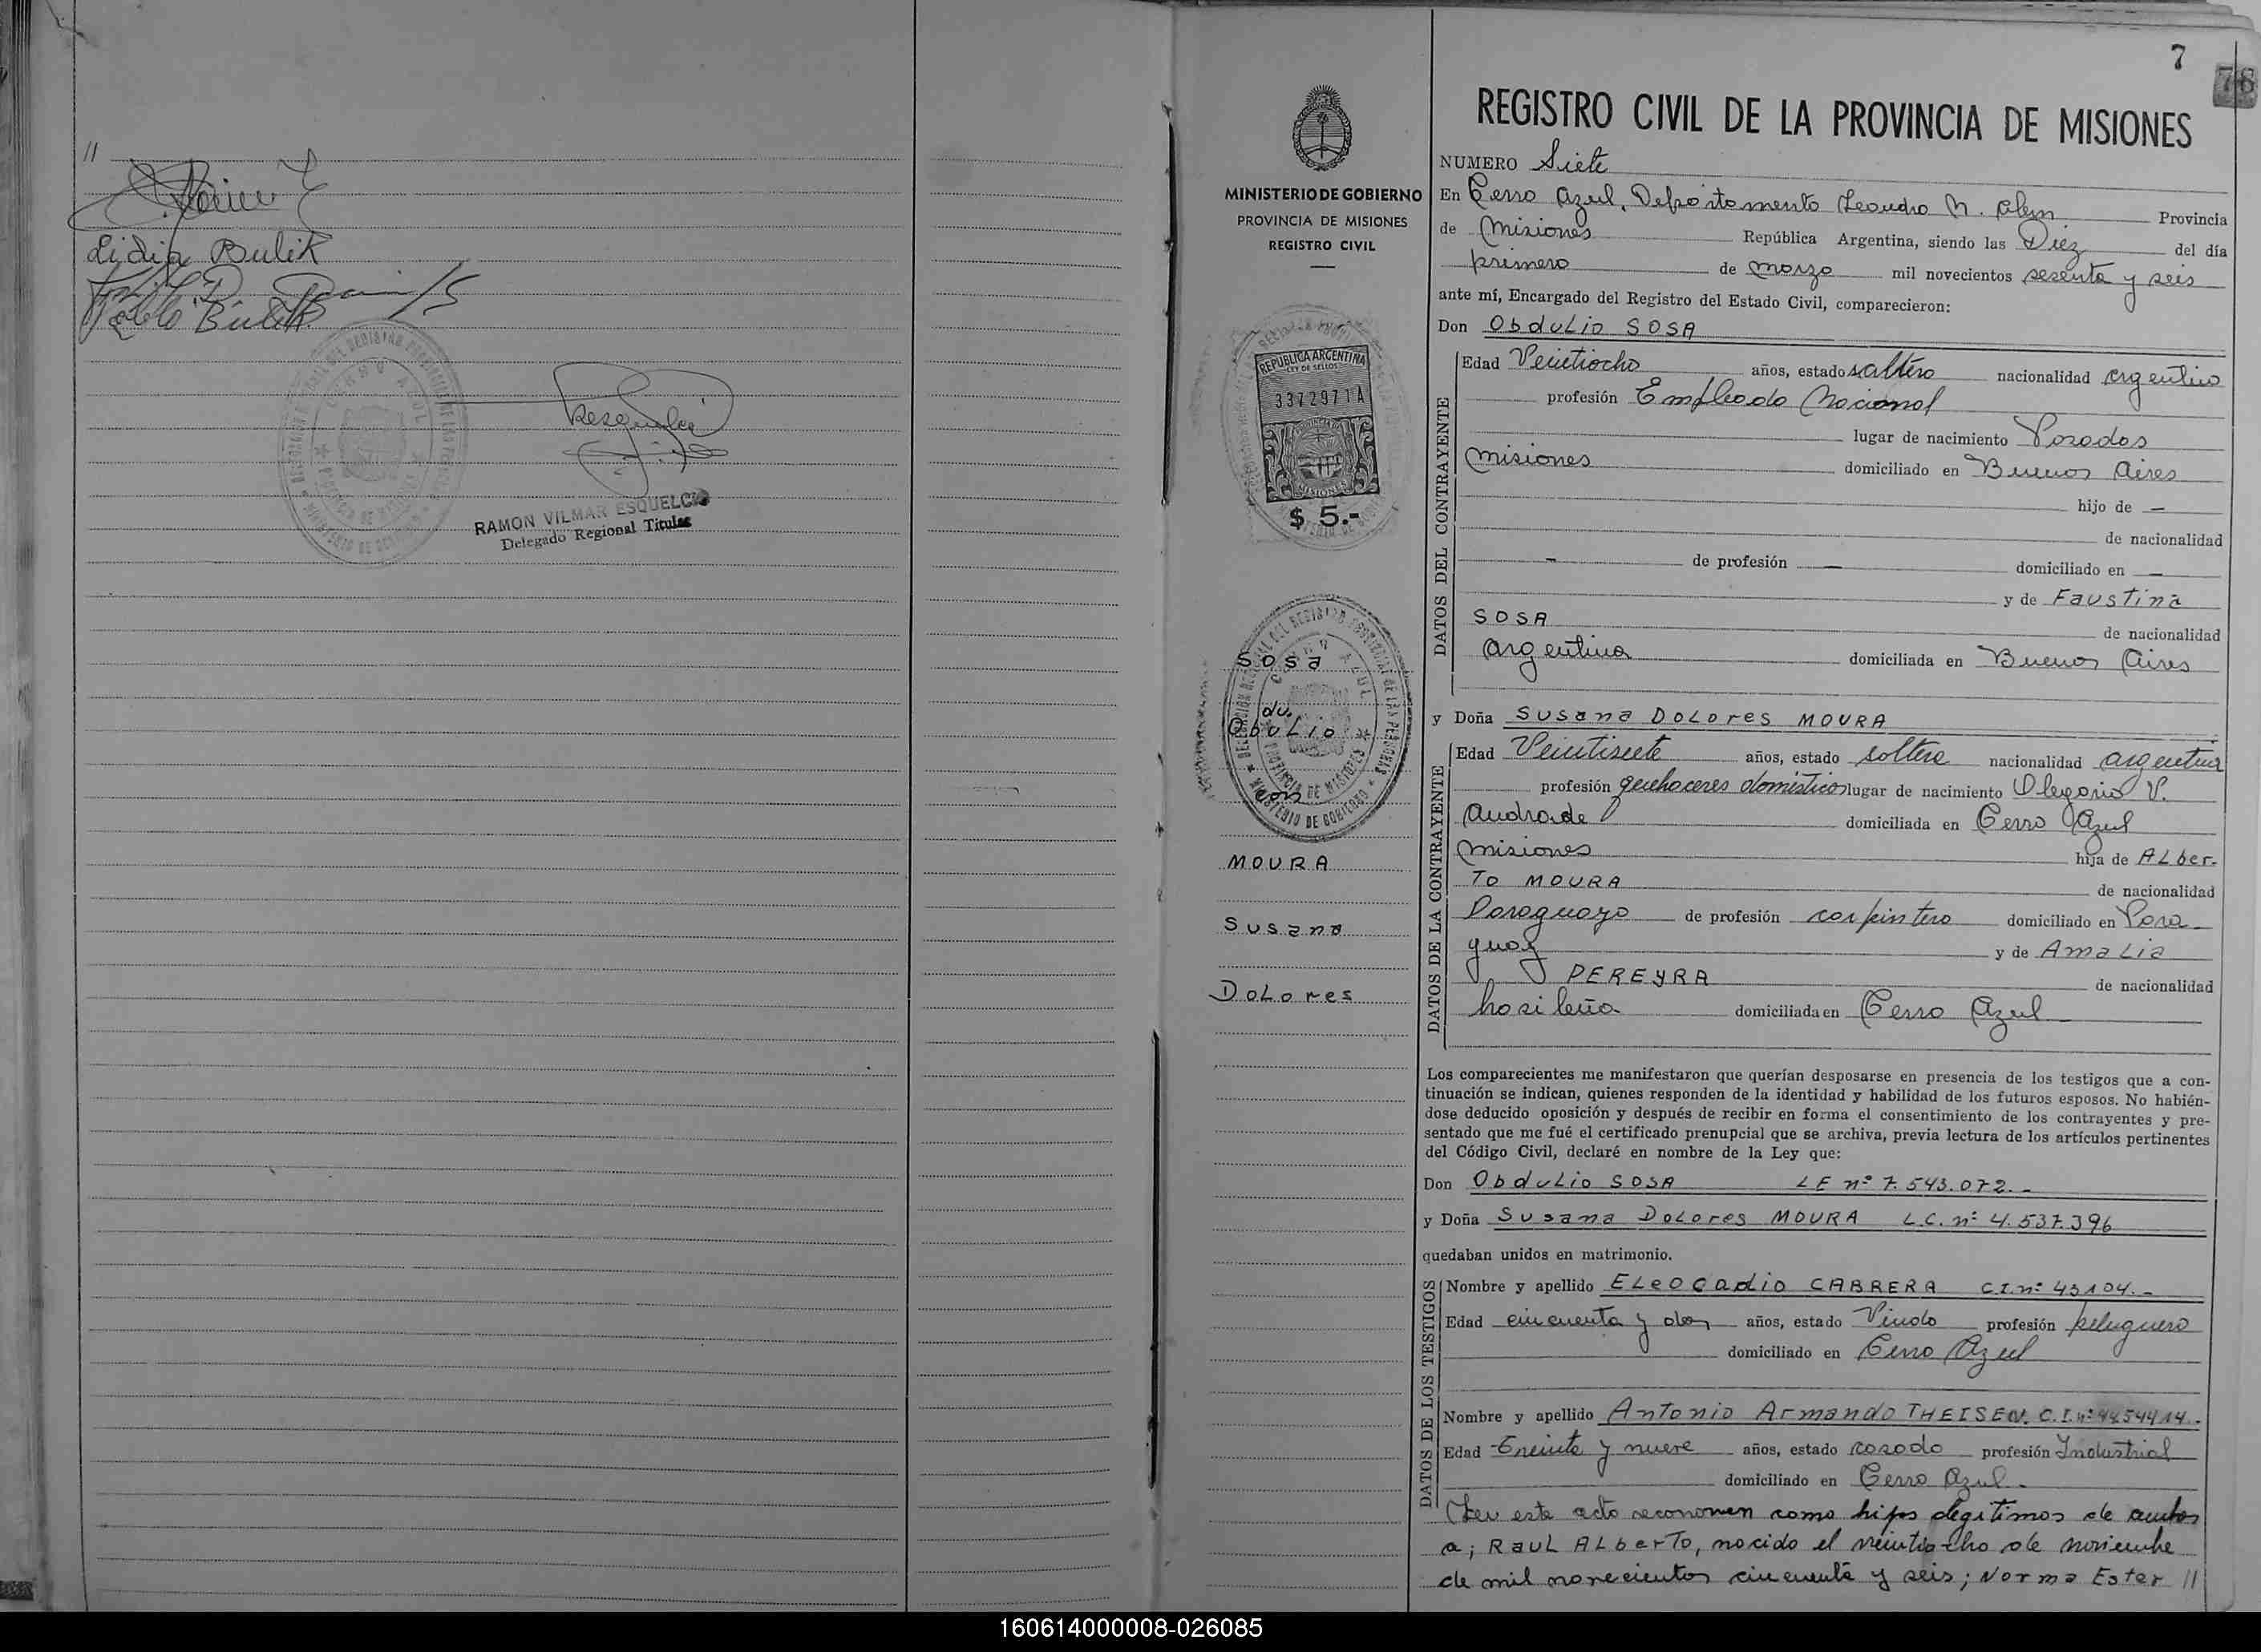 //
Lidia Bulik
Bulik
RAMON VILMAR ESQUELCO
Delegado Regional Titular
7
78
REGISTRO CIVIL DE LA PROVINCIA DE MISIONES
MINISTERIO DE GOBIERNO
PROVINCIA DE MISIONES
REGISTRO CIVIL
REPUBLICA ARGENTINA
LEY DE SELLOS
3372971A
MISIONES
$ 5.-
Sosa
Obdulio
con
MOURA
Susana
Dolores
NUMERO Siete
En Cerro Azul, Departamento Leandro N. Alem Provincia
de Misiones República Argentina, siendo las Diez del día
primero de marzo mil novecientos sesenta y seis
ante mí, Encargado del Registro del Estado Civil, comparecieron:
Don Obdulio SOSA
DATOS DEL CONTRAYENTE
Edad Veintiocho años, estado soltero nacionalidad argentino
profesión Empleado Nacional
lugar de nacimiento Posadas
Misiones domiciliado en Buenos Aires
hijo de —
de nacionalidad
— de profesión — domiciliado en —
y de Faustina
SOSA de nacionalidad
argentina domiciliada en Buenos Aires
y Doña Susana Dolores MOURA
DATOS DE LA CONTRAYENTE
Edad Veintisiete años, estado soltera nacionalidad argentina
profesión quehaceres domésticos lugar de nacimiento Olegario V.
Andrade domiciliada en Cerro Azul
Misiones hija de Alber-
to MOURA de nacionalidad
Paraguayo de profesión carpintero domiciliado en Para-
guay y de Amalia
PEREYRA de nacionalidad
brasileña domiciliada en Cerro Azul
Los comparecientes me manifestaron que querían desposarse en presencia de los testigos que a con-
tinuación se indican, quienes responden de la identidad y habilidad de los futuros esposos. No habién-
dose deducido oposición y después de recibir en forma el consentimiento de los contrayentes y pre-
sentado que me fué el certificado prenupcial que se archiva, previa lectura de los artículos pertinentes
del Código Civil, declaré en nombre de la Ley que:
Don Obdulio SOSA LE nº 7.543.072.-
y Doña Susana Dolores MOURA L.C. nº 4.537.396
quedaban unidos en matrimonio.
DATOS DE LOS TESTIGOS
Nombre y apellido Eleocadio CABRERA C.I. nº 43104.-
Edad cincuenta y dos años, estado Viudo profesión peluquero
domiciliado en Cerro Azul
Nombre y apellido Antonio Armando THEISEN. C.I. nº
Edad Treinta y nueve años, estado casado profesión Industrial
domiciliado en Cerro Azul.-
En este acto reconocen como hijos legítimos de ambos
a; Raul Alberto, nacido el veintiocho de noviembre
de mil novecientos cincuenta y seis; Norma Ester //
160614000008-026085